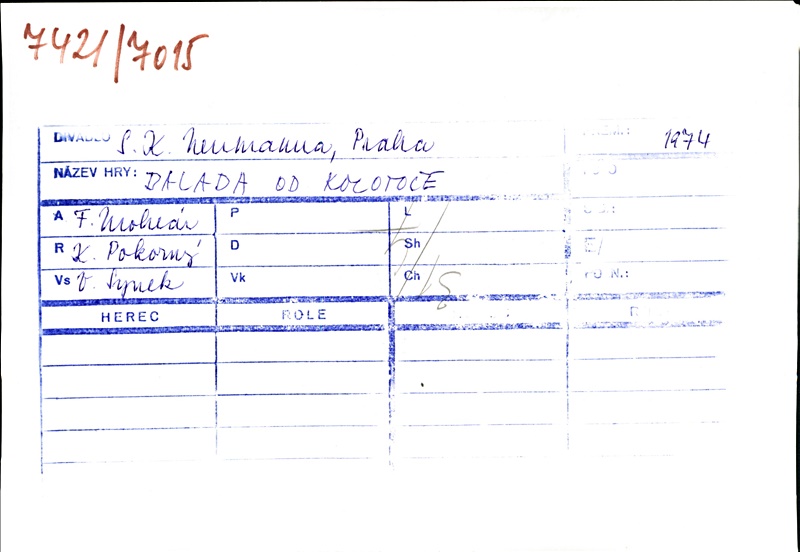 7421/7015
DIVADLO S. K. Neumanna, Praha 1974
NÁZEV HRY: BALADA OD KOLOTOČE
A F. Molnár P L
R K. Pokorný D Sh
Vs V. Synek Vk Ch
HEREC ROLE